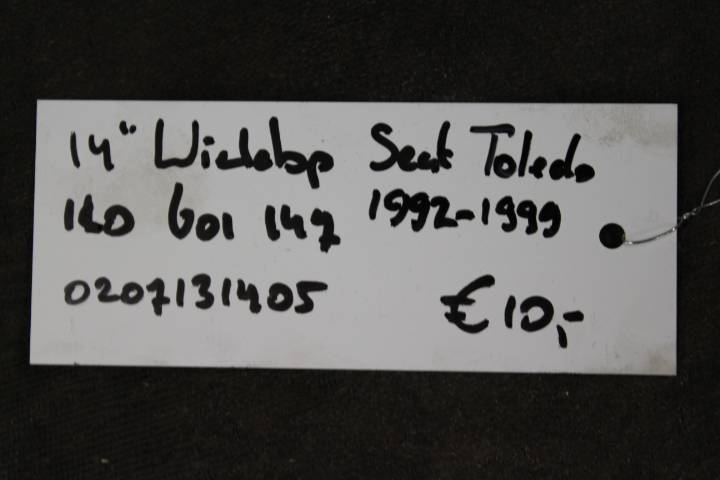 14" Wieldop Seat Toledo
1L0 601 147 1992-1999
0207131405 €10,-